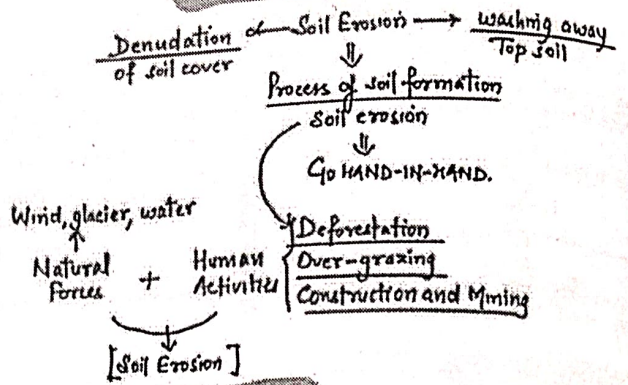 Denudation of soil cover ← Soil Erosion → washing away Top soil
⇓
Process of soil formation
soil erosion
⇓
Go HAND-IN-HAND.
Wind, glacier, water
↑
Natural Forces + Human Activities { Deforestation
Over-grazing
Construction and Mining
[Soil Erosion]